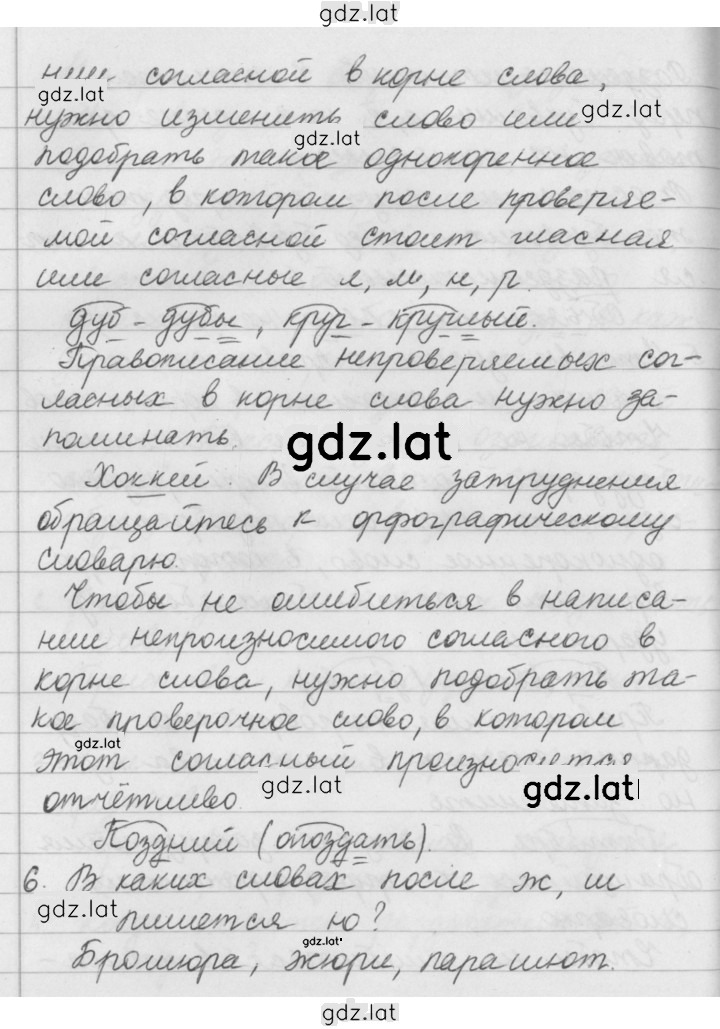 gdz.lat
согласной в корне слова,
gdz.lat
нужно изменить слово или
gdz.lat
подобрать такое однокоренное
слово, в котором после проверяе-
мой согласной стоит гласная
или согласные л, м, н, р.
дуб - дубы, круг - круглый.
Правописание непроверяемых сог-
ласных в корне слова нужно за-
поминать.
gdz.lat
Хоккей. В случае затруднения
обращайтесь к орфографическому
словарю.
Чтобы не ошибиться в написа-
нии непроизносимого согласного в
корне слова, нужно подобрать та-
кое проверочное слово, в котором
gdz.lat
этот согласный произносится
gdz.lat
gdz.lat
отчётливо.
Поздний (опоздать).
6. В каких словах после ж, ш
gdz.lat
пишется ю?
gdz.lat
Брошюра, жюри, парашют.
gdz.lat